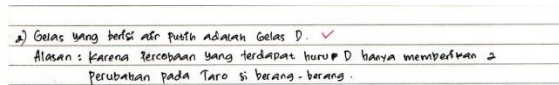 a) Gelas yang berisi air putih adalah Gelas D.
Alasan : Karena Percobaan yang terdapat hurup D hanya memberikan 2
Perubahan pada Taro si berang-berang.